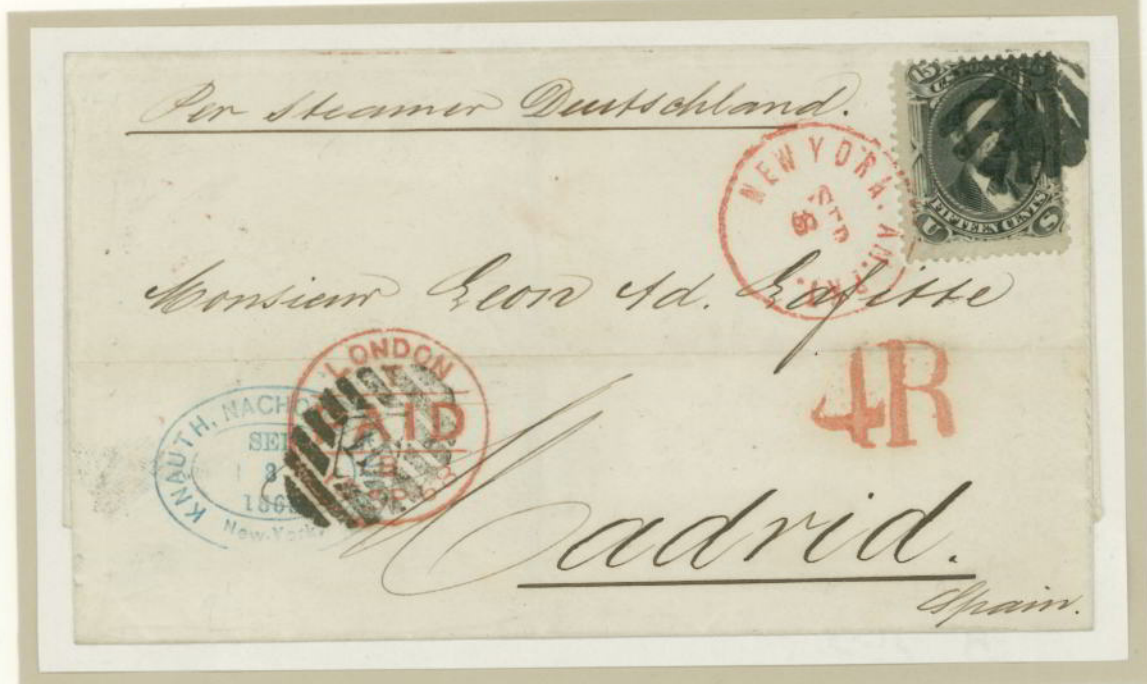 Per Steamer Deutschland.
15
U.S.
FIFTEEN CENTS
U S
NEW YORK. AM. PKT.
SEP
Monsieur Leon Ad. Lafitte
4R
LONDON
PAID
KNAUTH, NACHO
SEP
8
186
New-York
Madrid.
Spain.